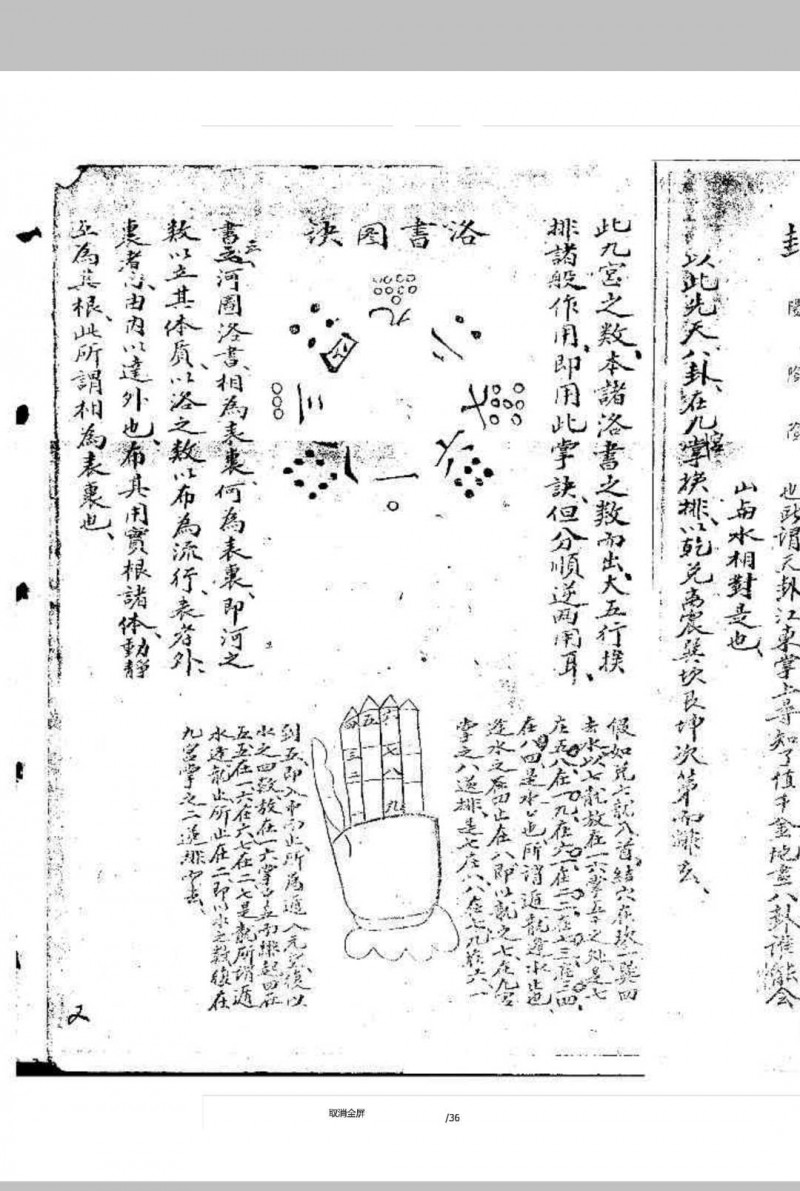 卦
陽
陰
陰
也所謂天卦江東掌上尋知了值千金地畫八卦誰能会
山与水相對是也、
以此先天八卦、在九掌挨排、以乾兑离震巽坎艮坤次第而排去、
宮
此九宮之数、本諸洛書之数而出、大五行挨
排諸般作用、即用此掌訣、但分順逆兩用耳、
洛書圖訣
九
二
七
六
一
八
三
四
書云河圖洛書、相為表裏、何為表裏、即河之
数以立其体質、以洛之数以布為流行、表者外、
裏者、由内以達外也、布其用實根諸体、動靜
互為其根、此所謂相為表裏也、
假如兑六龍入首、結穴在坎一巽四
去水、以七龍放在一六掌五之处、是七
在五八在一九在六一在二二在七三在三四
在八四是水也所謂遁龍逢水止也、
逢水之四止在八即以龍之七在九宮
掌之八逆排、是七在八八在七九在六一
到五、即入中而止、所為遁入元宮、後以
水之四数放在一六掌之五而跳起四在
五五在一六在六七在二七是龍所謂遁
水逢龍止所止在二即以水之数復在
九宮掌之二逆排而去、
四五六
三七
二八
一九
又
取消全屏
/36